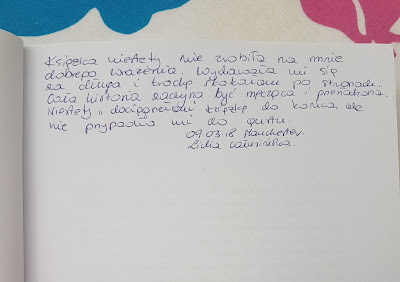 Książka niestety, nie zrobiła na mnie
dobrego wrażenia. Wydawała mi się
za długa i trochę skakałam po stronach.
Cała historia zaczyna być męcząca i przenudzona.
Niestety, dociągnęłam książkę do końca, ale
nie przypadła mi do gustu.
09.03.18 Manchester
Lidia